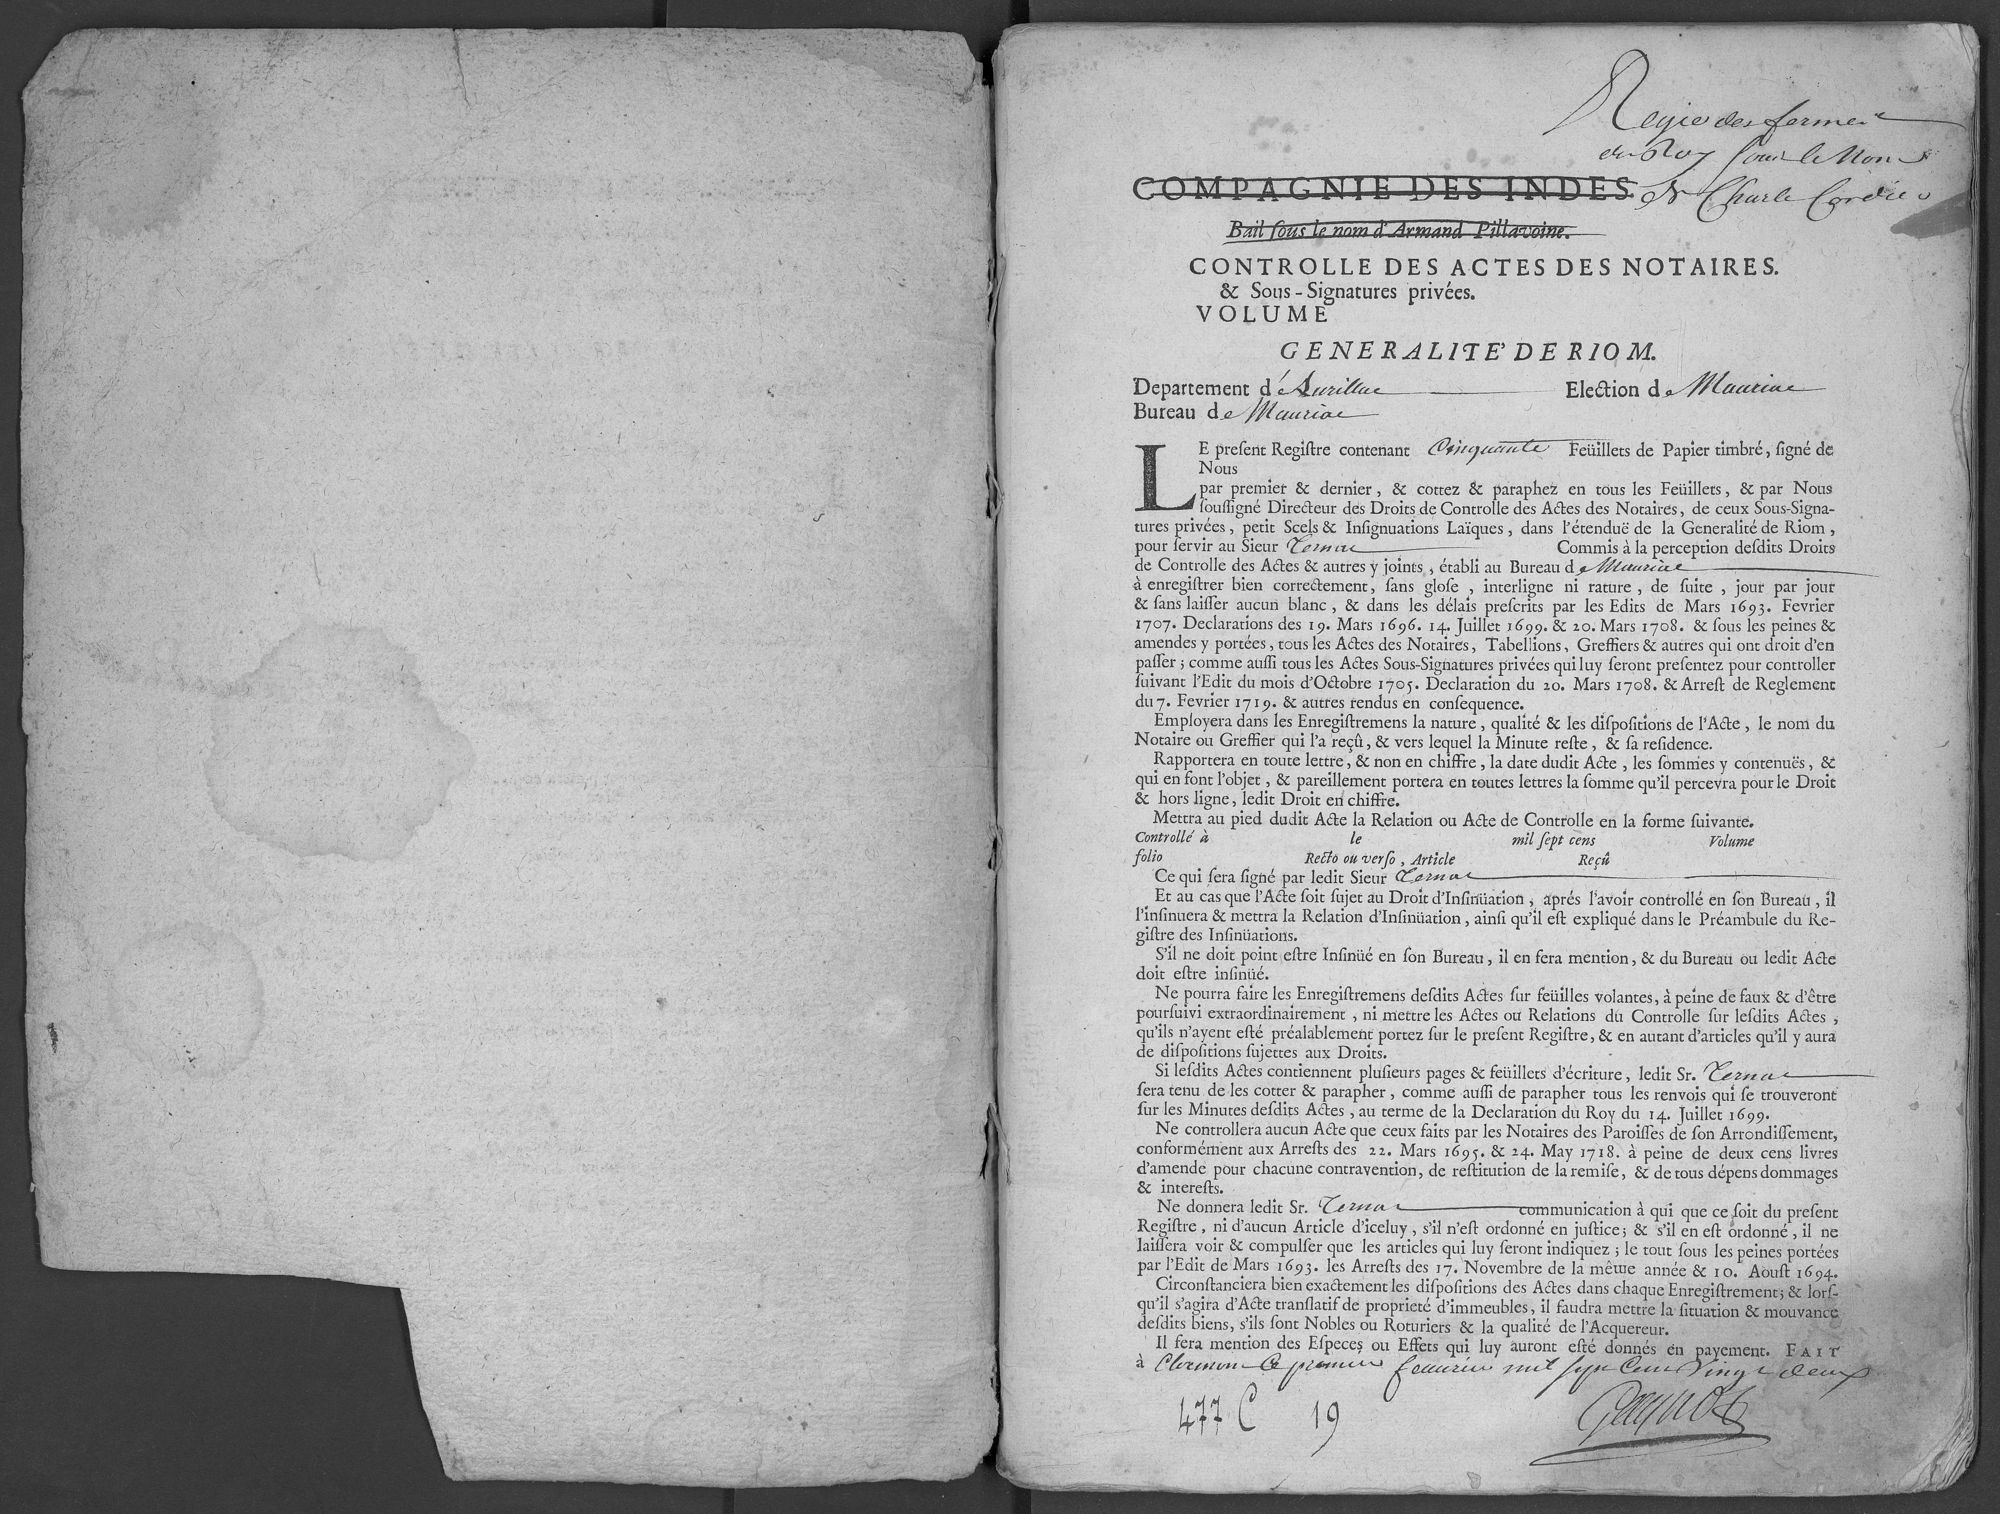 Regie des fermes
du Roy sous le Nom
COMPAGNIE DES INDES.
de Charle Cordier
Bail ſous le nom d'Armand Pillavoine.
CONTROLLE DES ACTES DES NOTAIRES.
& Sous-Signatures privées.
VOLUME
GENERALITE' DE RIOM.
Departement d'Aurillac Election de Mauriac
Bureau de Mauriac
LE preſent Regiſtre contenant Cinquante Feüillets de Papier timbré, ſigné de
Nous
par premier & dernier, & cottez & paraphez en tous les Feüillets, & par Nous
ſouſſigné Directeur des Droits de Controlle des Actes des Notaires, de ceux Sous-Signa-
tures privées, petit Scels & Inſignuations Laïques, dans l'étenduë de la Generalité de Riom,
pour ſervir au Sieur Ternat Commis à la perception deſdits Droits
de Controlle des Actes & autres y joints, établi au Bureau de Mauriac
à enregiſtrer bien correctement, ſans gloſe, interligne ni rature, de ſuite, jour par jour
& ſans laiſſer aucun blanc, & dans les délais preſcrits par les Edits de Mars 1693. Fevrier
1707. Declarations des 19. Mars 1696. 14. Juillet 1699. & 20. Mars 1708. & ſous les peines &
amendes y portées, tous les Actes des Notaires, Tabellions, Greffiers & autres qui ont droit d'en
paſſer; comme auſſi tous les Actes Sous-Signatures privées qui luy ſeront preſentez pour controller
ſuivant l'Edit du mois d'Octobre 1705. Declaration du 20. Mars 1708. & Arreſt de Reglement
du 7. Fevrier 1719. & autres rendus en conſequence.
Employera dans les Enregiſtremens la nature, qualité & les diſpoſitions de l'Acte, le nom du
Notaire ou Greffier qui l'a reçû, & vers lequel la Minute reſte, & ſa reſidence.
Rapportera en toute lettre, & non en chiffre, la date dudit Acte, les ſommes y contenuës, &
qui en font l'objet, & pareillement portera en toutes lettres la ſomme qu'il percevra pour le Droit
& hors ligne, ledit Droit en chiffre.
Mettra au pied dudit Acte la Relation ou Acte de Controlle en la forme ſuivante.
Controllé à le mil ſept cens Volume
folio Recto ou verſo, Article Reçû
Ce qui ſera ſigné par ledit Sieur Ternat
Et au cas que l'Acte ſoit ſujet au Droit d'Inſinüation, aprés l'avoir controllé en ſon Bureau, il
l'inſinuera & mettra la Relation d'Inſinüation, ainſi qu'il eſt expliqué dans le Préambule du Re-
giſtre des Inſinüations.
S'il ne doit point eſtre Inſinüé en ſon Bureau, il en fera mention, & du Bureau ou ledit Acte
doit eſtre inſinüé.
Ne pourra faire les Enregiſtremens deſdits Actes ſur feüilles volantes, à peine de faux & d'être
pourſuivi extraordinairement, ni mettre les Actes ou Relations du Controlle ſur leſdits Actes,
qu'ils n'ayent eſté préalablement portez ſur le preſent Regiſtre, & en autant d'articles qu'il y aura
de diſpoſitions ſujettes aux Droits.
Si leſdits Actes contiennent pluſieurs pages & feüillets d'écriture, ledit Sr. Ternat
ſera tenu de les cotter & parapher, comme auſſi de parapher tous les renvois qui ſe trouveront
ſur les Minutes deſdits Actes, au terme de la Declaration du Roy du 14. Juillet 1699.
Ne controllera aucun Acte que ceux faits par les Notaires des Paroiſſes de ſon Arrondiſſement,
conformément aux Arreſts des 22. Mars 1695. & 24. May 1718. à peine de deux cens livres
d'amende pour chacune contravention, de reſtitution de la remiſe, & de tous dépens dommages
& intereſts.
Ne donnera ledit Sr. Ternat communication à qui que ce ſoit du preſent
Regiſtre, ni d'aucun Article d'iceluy, s'il n'eſt ordonné en juſtice; & s'il en eſt ordonné, il ne
laiſſera voir & compulſer que les articles qui luy ſeront indiquez; le tout ſous les peines portées
par l'Edit de Mars 1693. les Arreſts des 17. Novembre de la même année & 10. Aouſt 1694.
Circonſtanciera bien exactement les diſpoſitions des Actes dans chaque Enregiſtrement; & lorſ-
qu'il s'agira d'Acte tranſlatif de proprieté d'immeubles, il faudra mettre la ſituation & mouvance
deſdits biens, s'ils ſont Nobles ou Roturiers & la qualité de l'Acquereur.
Il fera mention des Eſpeces ou Effets qui luy auront eſté donnés en payement. FAIT
à Clermont Ce premier feaurier mil sept Cent Vingt deux
477 C 19